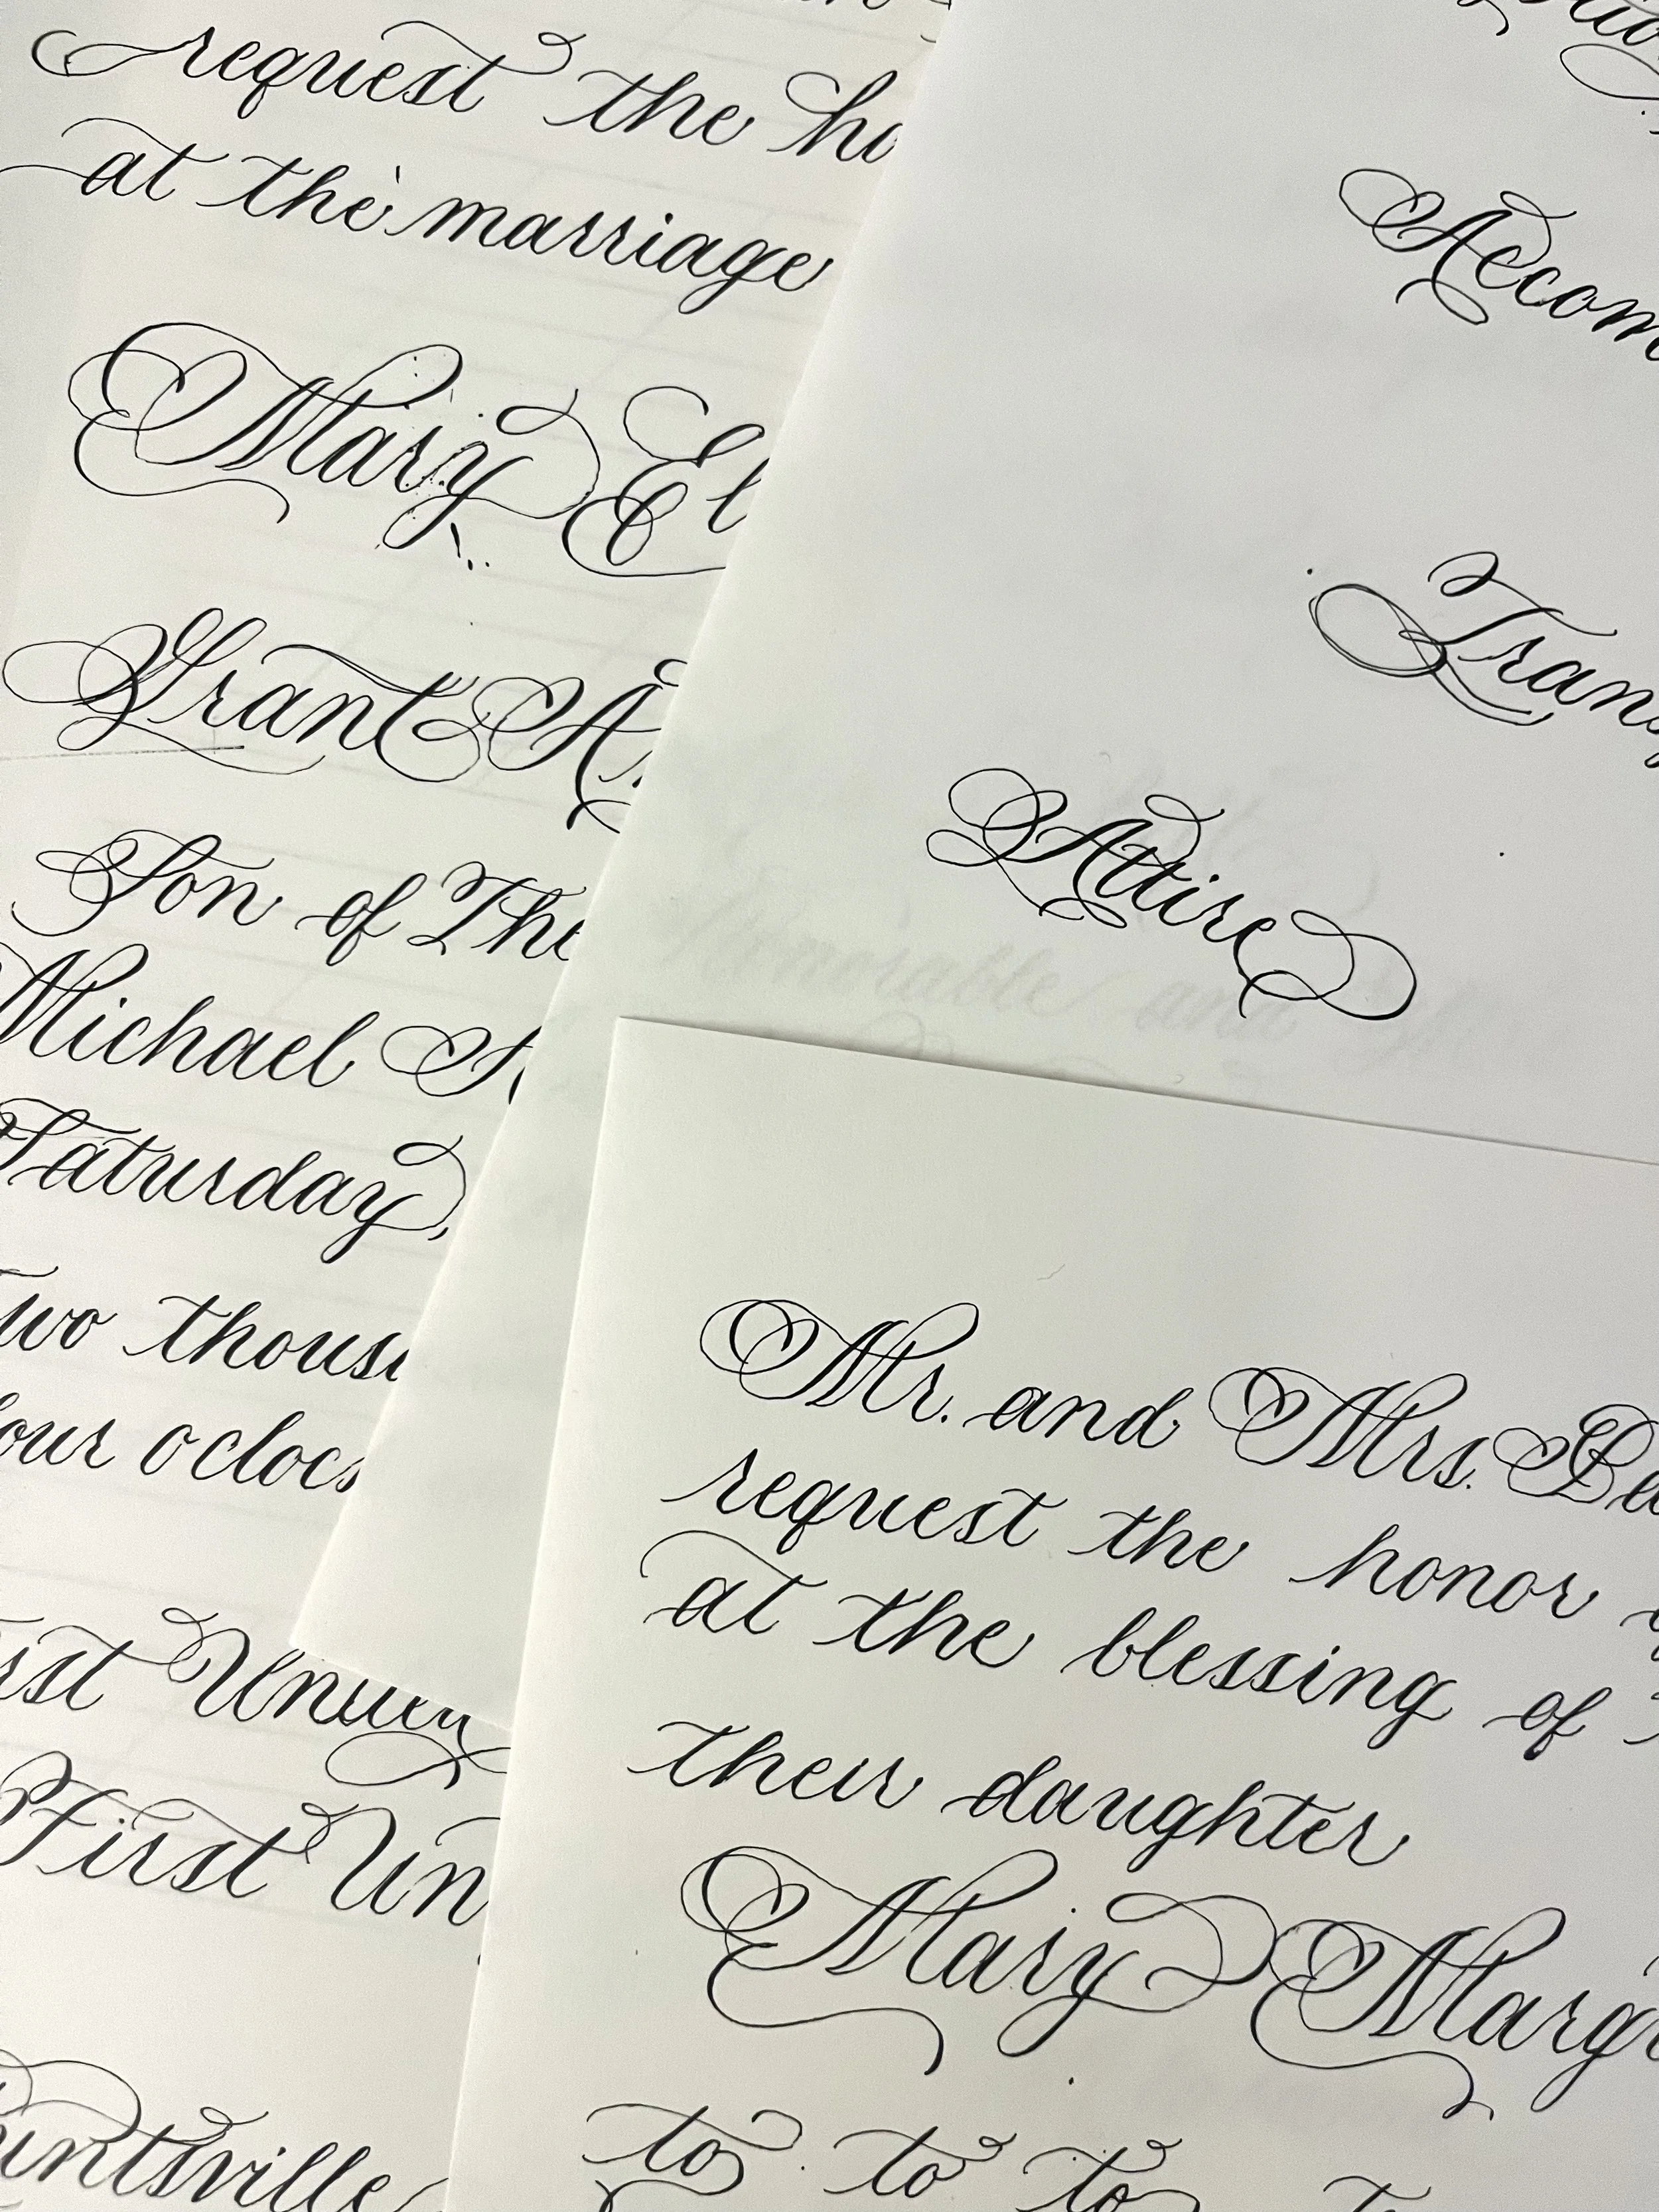 request the ho
at the marriage
Mary El
Grant A.
Son of The
Michael S.
Saturday,
Two thous
four oclock
First Un
First Un
Huntsville
Accom
Trans
Attire
Honorable and
Mr. and Mrs. Be
request the honor
at the blessing of
their daughter
Mary Marg
to to to